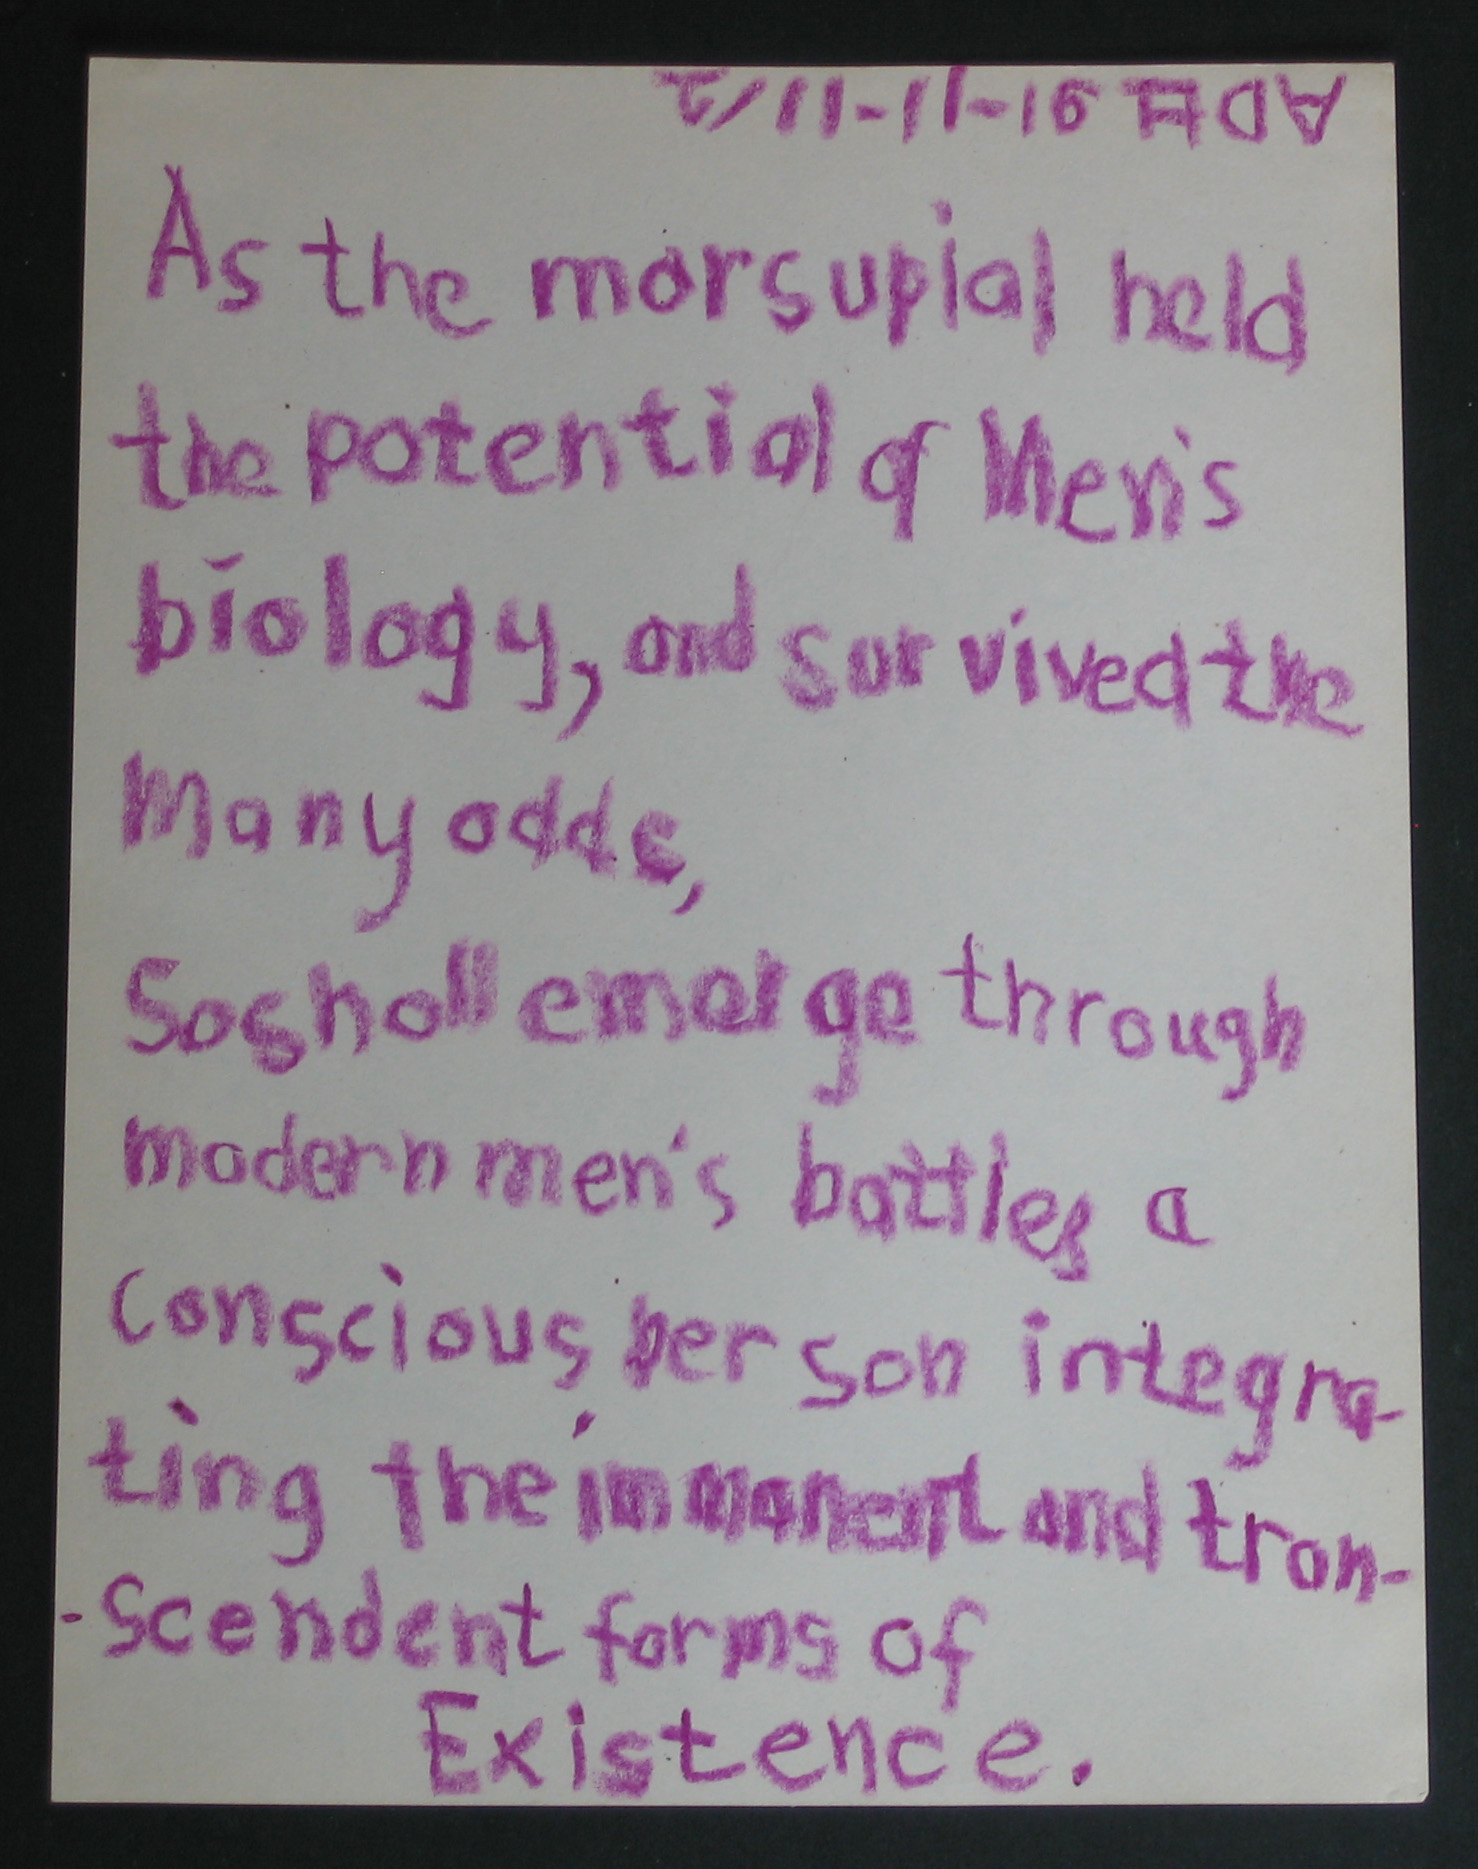 As the marsupial held
the potential of Men's
biology, and survived the
Many odds,
So shall emerge through
modern men's battles a
conscious person integra-
ting the immanent and tran-
-scendent forms of
Existence.